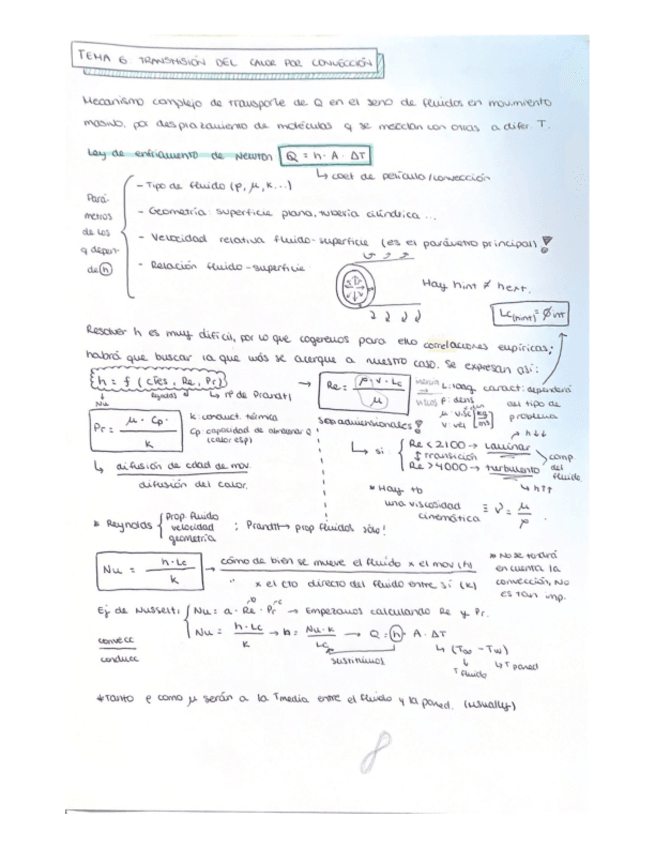 TEMA 6 TRANSMISIÓN DEL CALOR POR CONVECCIÓN
Mecanismo complejo de transporte de Q en el seno de fluidos en movimiento
masivo, por desplazamiento de moléculas q se mezclan con otras a difer. T.
Ley de enfriamiento de Newton Q = h · A · ΔT
↳ coef de película/convección
Pará-
metros
de los
q depen-
de h
- Tipo de fluido (ρ, μ, k...)
- Geometría: superficie plana, tubería cilíndrica ...
- Velocidad relativa fluido-superficie (es el parámetro principal) !
- Relación fluido-superficie
Hay hint ≠ hext.
Lc(hint) = Øint
Resolver h es muy difícil, por lo que cogeremos para ello correlaciones empíricas;
habrá que buscar la que más se acerque a nuestro caso. Se expresan así:
h = f (ctes, Re, Pr) → Re = ρ · v · Lc / μ
Nu
Reynolds ↳ nº de Prandtl
L: long. caract: dependerá
ρ: dens del tipo de
μ: visc problema
v: vel [m/s]
Pr = μ · Cp / k
k: conduct. térmica
Cp capacidad de almacenar Q
(calor esp)
son adimensionales!
↳ si { Re < 2100 → laminar
↕ transición
Re > 4000 → turbulento
comp. del fluido
↳ h↑↑
↳ difusión de cdad de mov.
difusión del calor.
* Hay tb
una viscosidad
cinemática ≡ ν = μ / ρ
* Reynolds { Prop. fluido
velocidad
geometría
; Prandtl → prop fluidos sólo!
Nu = h · Lc / k → cómo de bien se mueve el fluido x el mov (h)
" x el cto directo del fluido entre sí (k)
* No se tendrá
en cuenta la
convección, No
es tan imp.
Ej de Nusselt: { Nu = a · Re^b · Pr^c → Empezamos calculando Re y Pr.
Nu = h · Lc / k → h = Nu · k / Lc → Q = h · A · ΔT
convecc
conducc
sustituimos
↳ (T∞ - Tw)
T fluido
↳ T pared
* Tanto ρ como μ serán a la Tmedia entre el fluido y la pared. (usually)
8